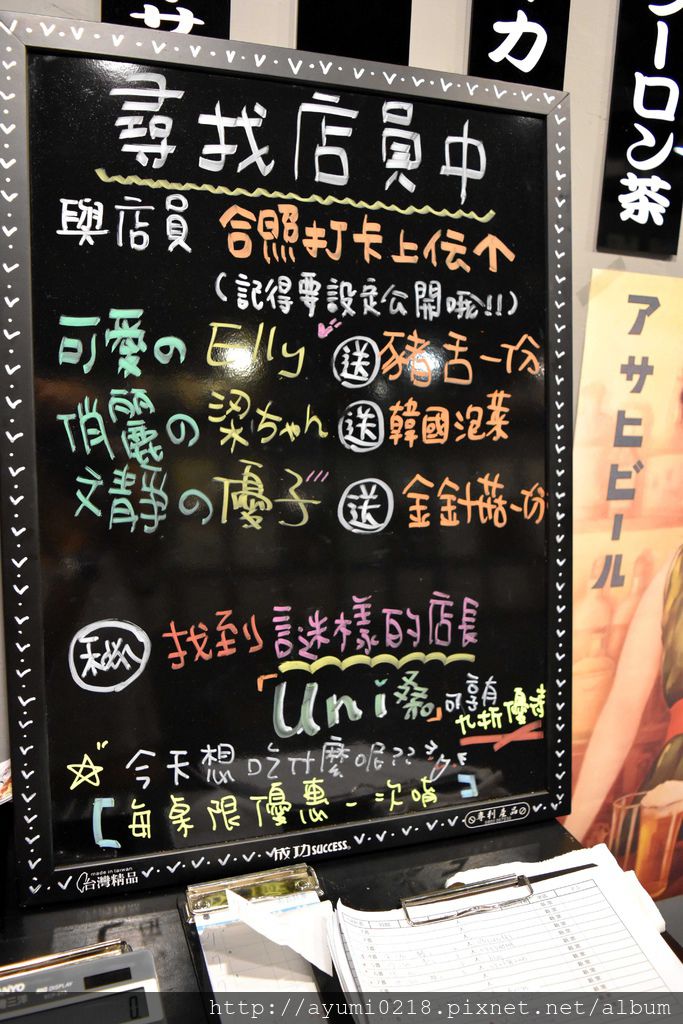 尋找店員中
與店員 合照打卡上伝↑
(記得要設定公開哦!!)
可愛の Elly 送 豬舌一份
俏麗の 梁ちゃん 送 韓國泡菜
文靜の 優子 送 金針菇一份
秘 找到 謎樣的店長
「Uni桑」可享有
九折優待
☆ 今天想吃什麼呢??
【每桌限優惠一次唷】
專利產品
成功 SUCCESS
made in taiwan
台灣精品
サ
カ
ーロン茶
アサヒビール
DISPLAY
0
http://ayumi0218.pixnet.net/album